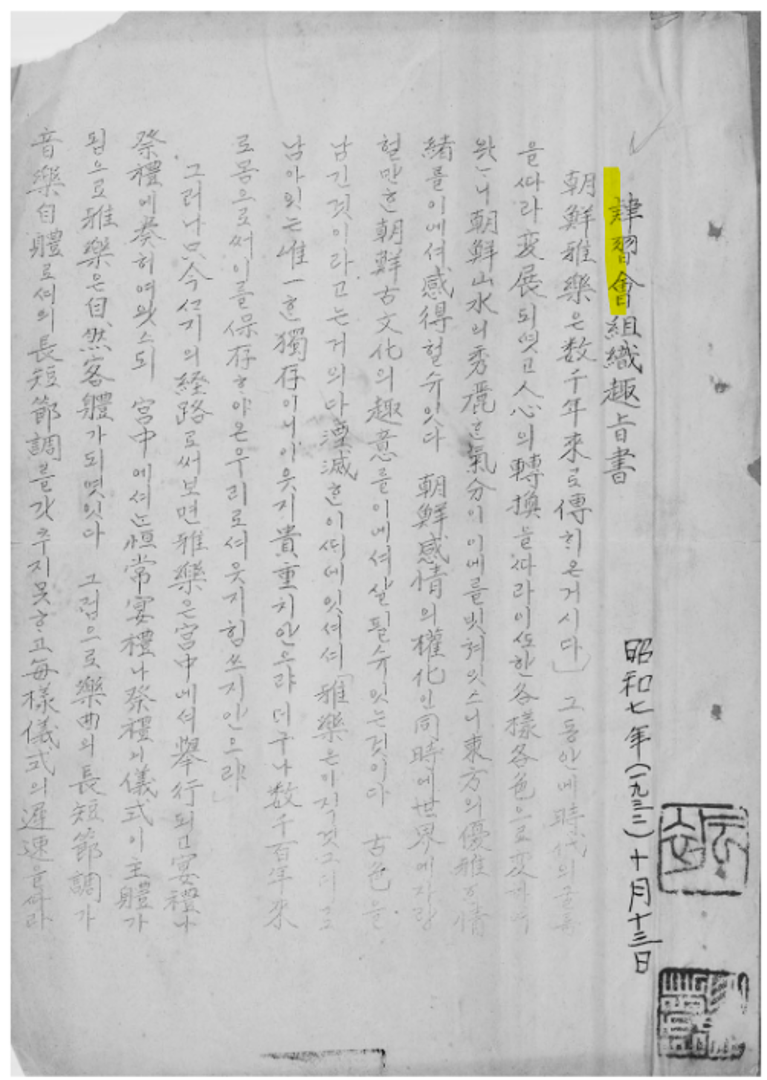 肄習會組織趣旨書
昭和七年(一九三二)十月十三日
朝鮮雅樂은数千年來로傳히온거시다」 그동안에時代의
을따라変展되엿고人心의轉換을따라이또한各樣各色으로変
왓스니朝鮮山水의秀麗한氣分이이에를빗혀잇스니東方의優雅한情
緖를이에셔感得헐슈잇다 朝鮮感情의權化인同時에世界에자랑
헐만흔朝鮮古文化의趣意를이에셔살필슈잇는것이다 古色을
남긴것이라고는거의다湮滅흔이때에잇셔셔「雅樂은아직것그대로
남아잇는惟一흔獨存이니이웃지貴重치안으랴 더구나数千百年來
로몸으로써이를保存하야온우리로셔웃지힘쓰지안으랴
그러나只今신기의経路로써보면雅樂은宮中에셔擧行되는宴禮나
祭禮에奏하여왓스되 宮中에셔는恒常宴禮나祭禮의儀式이主體가
됨으로雅樂은自然客體가되엿잇다 그럼으로樂曲의長短節調가
音樂自體로셔의長短節調를갓추지못하고每樣儀式의遲速을따라